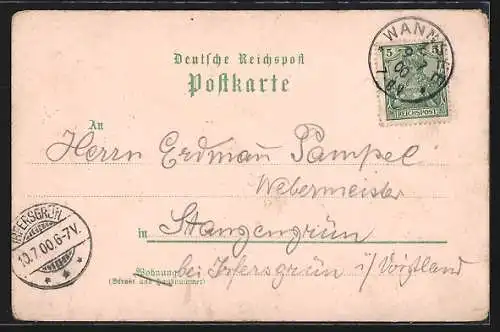 WANNSEE
5 5
REICHSPOST
Deutsche Reichspost
Postkarte
An
Herrn Erdman Pampel
Webermeister
in Stangengrün
IRFERSGRÜN
10.7.00.6-7V.
Wohnung
bei Irfersgrün i/Voigtland
(Straße und Hausnummer)